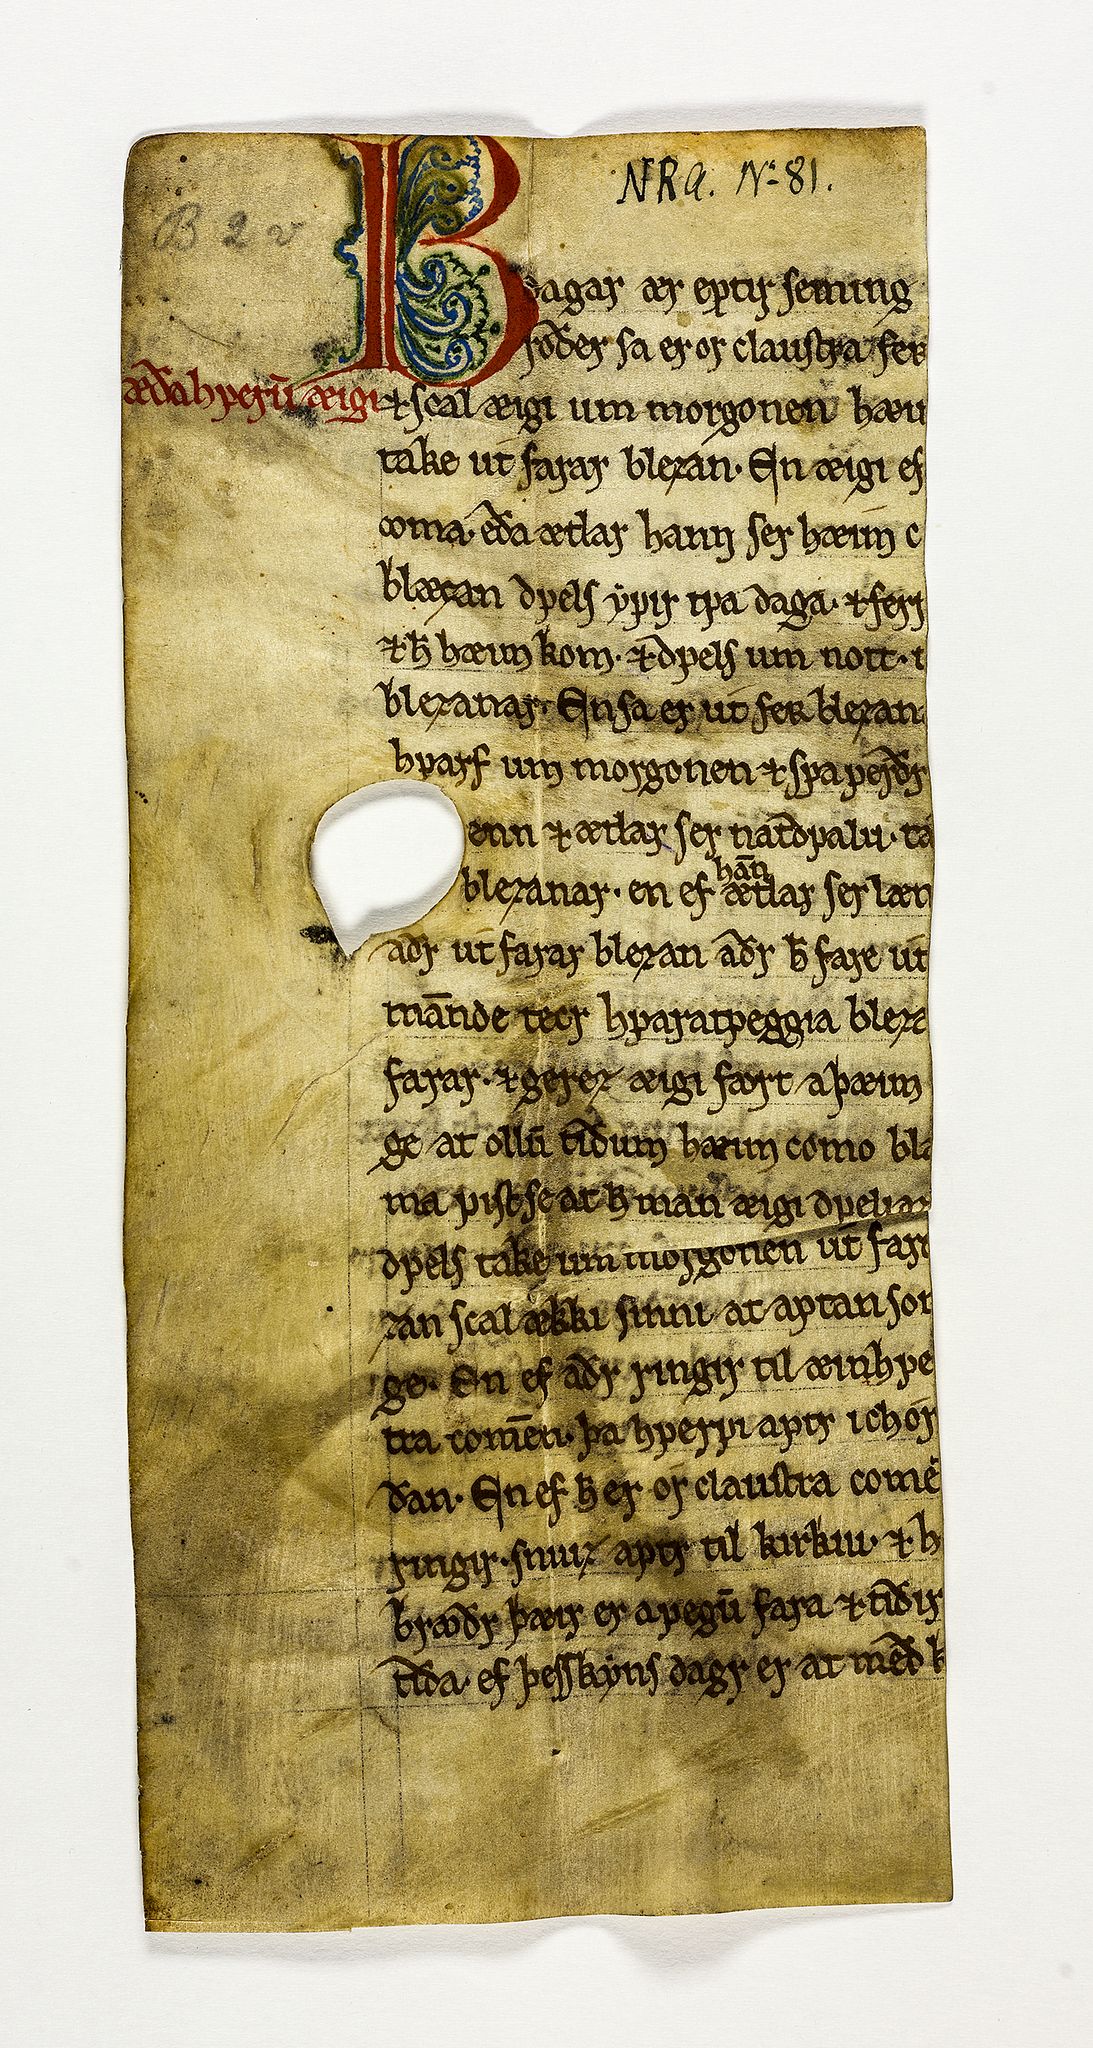 NRA. No 81.
B 2 v
B
dagar ær eptir setning
roðer sa er or claustra fer
æða hverū æigi
⁊ scal æigi um morgonen hæu
take ut farar blezan. En æigi ef
coma. eða ætlar hann ser hæim c
blæzan dvels yvir tva daga. ⁊ ferr
⁊ ħ hæim kom. ⁊ dvels um nott. t
blezanar. En sa er ut feʀ blezan
hvarf um morgonen ⁊ sva verðr
enn ⁊ ætlar ser nattdvalu. ta
hān
blezanar. en ef ætlar ser læn
aðr ut farar blezan aðr ħ fare ut
mānde tecr hvaratveggia bleza
farar. ⁊ gerez æigi fært a þæim
ge at ollū tiðum hæim como blæ
ma vist se at ħ man æigi dveliaz
dvels take um morgonen ut fara
zan scal ækki sinni at aptan son
ge. En ef aðr ringir til æinhve
tra comēn. þa hvervi aptr i chor
ðan. En ef ħ er or claustra comē
ringir. snuiz aptr til kirkiu. ⁊ h
bræðr þæir er a vegū fara ⁊ tiðir
tiða. ef þesskyns dagr er at með k